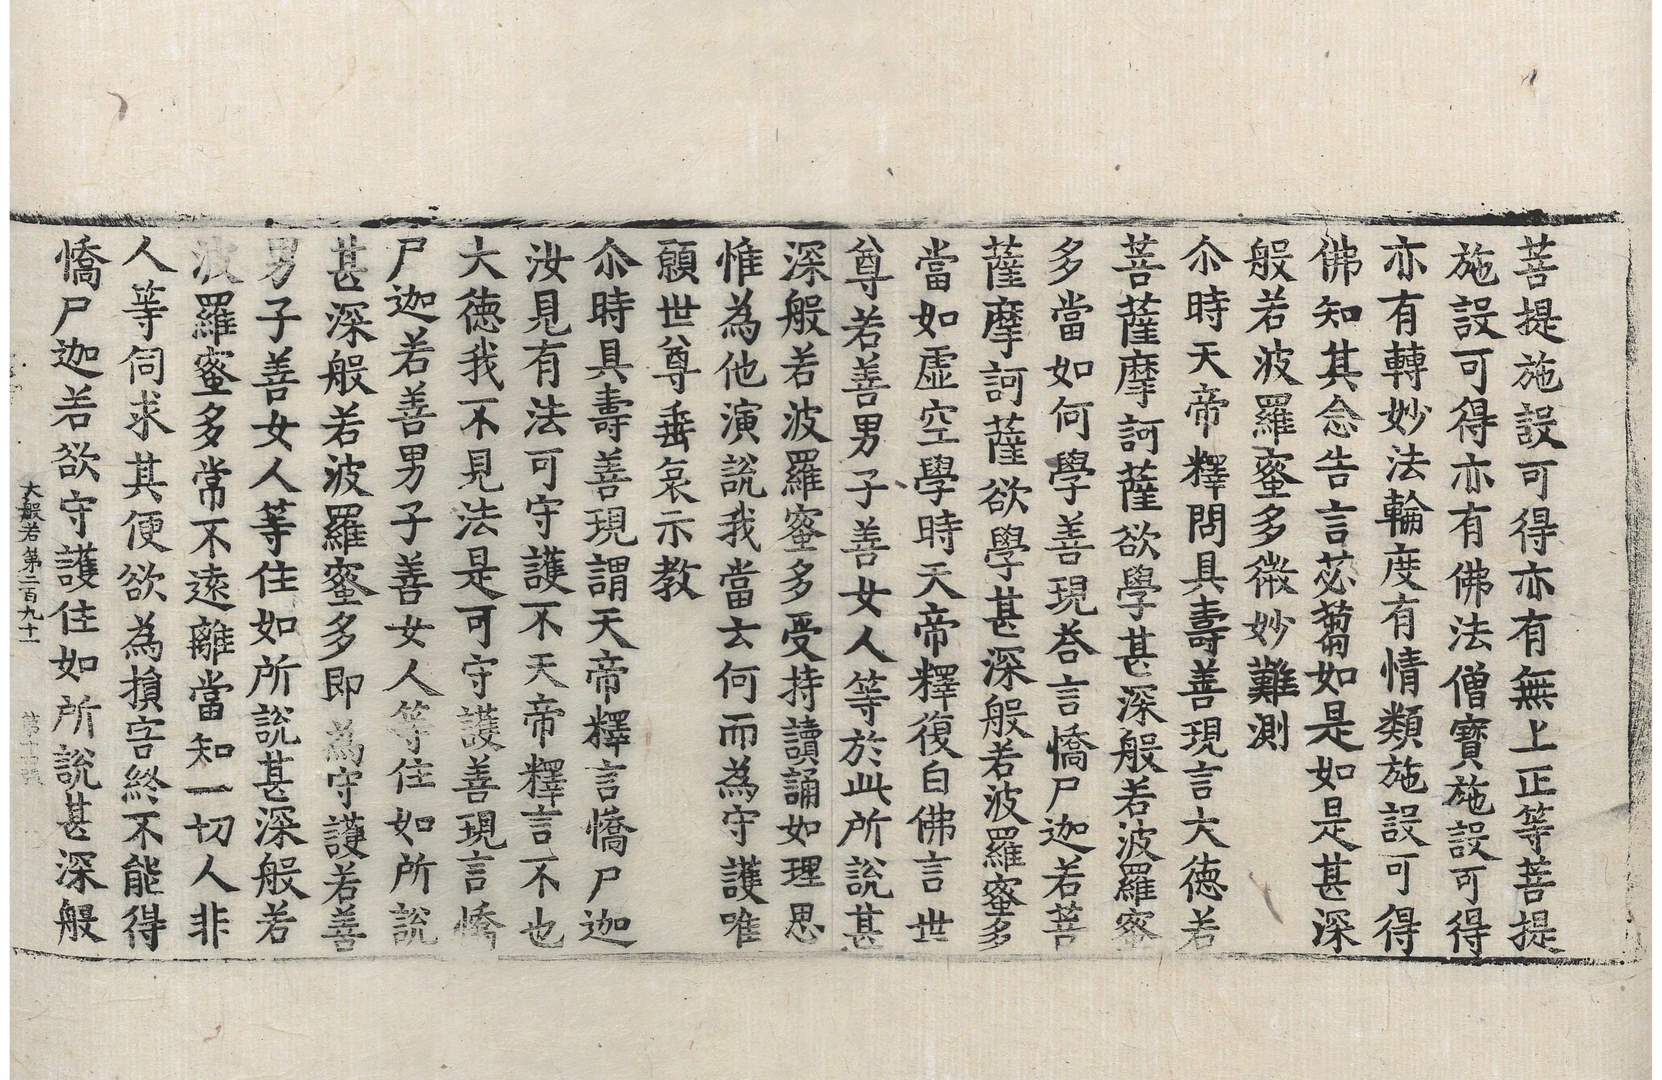 菩提施設可得亦有無上正等菩提
施設可得亦有佛法僧寶施設可得
亦有轉妙法輪度有情類施設可得
佛知其念告言苾蒭如是如是甚深
般若波羅蜜多微妙難測
尒時天帝釋問具壽善現言大德若
菩薩摩訶薩欲學甚深般若波羅蜜
多當如何學善現荅言憍尸迦若菩
薩摩訶薩欲學甚深般若波羅蜜多
當如虛空學時天帝釋復白佛言世
尊若善男子善女人等於此所說甚
深般若波羅蜜多受持讀誦如理思
惟為他演說我當云何而為守護唯
願世尊垂哀示教
尒時具壽善現謂天帝釋言憍尸迦
汝見有法可守護不天帝釋言不也
大德我不見法是可守護善現言憍
尸迦若善男子善女人等住如所說
甚深般若波羅蜜多即為守護若善
男子善女人等住如所說甚深般若
波羅蜜多常不遠離當知一切人非
人等伺求其便欲為損害終不能得
憍尸迦若欲守護住如所說甚深般
大般若第二百九十一